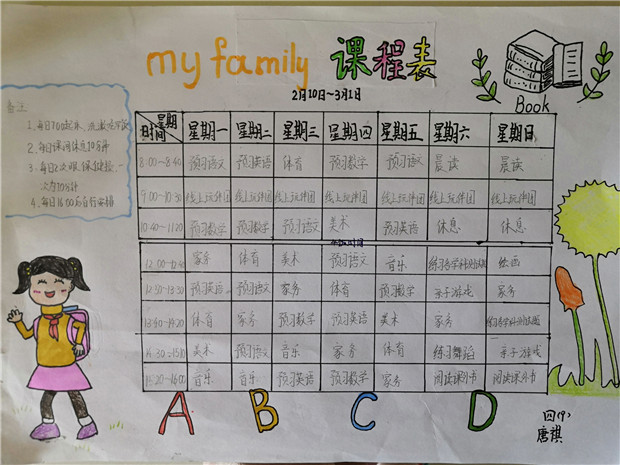 my family 课程表
2月10日~3月1日
Book
备注
1、每日7:00起床
2、每日课间休息10分钟
3、每日2次眼保健操
一次为10分钟
4、每日16:00后自行安排
星期 时间 星期一 星期二 星期三 星期四 星期五 星期六 星期日
8:00~8:40 预习语文 预习英语 体育 预习数学 预习语文 晨读 晨读
9:00~10:30 线上玩伴团 线上玩伴团 线上玩伴团 线上玩伴团 线上玩伴团 线上玩伴团 线上玩伴团
10:40~11:20 预习数学 预习数学 预习语文 美术 预习英语 休息 休息
家务 体育 美术 预习语文 音乐 绘画
12:50~13:30 预习英语 预习语文 家务 体育 预习数学 亲子游戏 家务
13:40~14:20 体育 家务 预习数学 预习英语 美术 家务
14:30~15:10 美术 预习语文 音乐 家务 体育 练习舞蹈 亲子游戏
15:20~16:00 音乐 音乐 预习英语 预习数学 家务 阅读课外书 阅读课外书
A B C D
唐祺